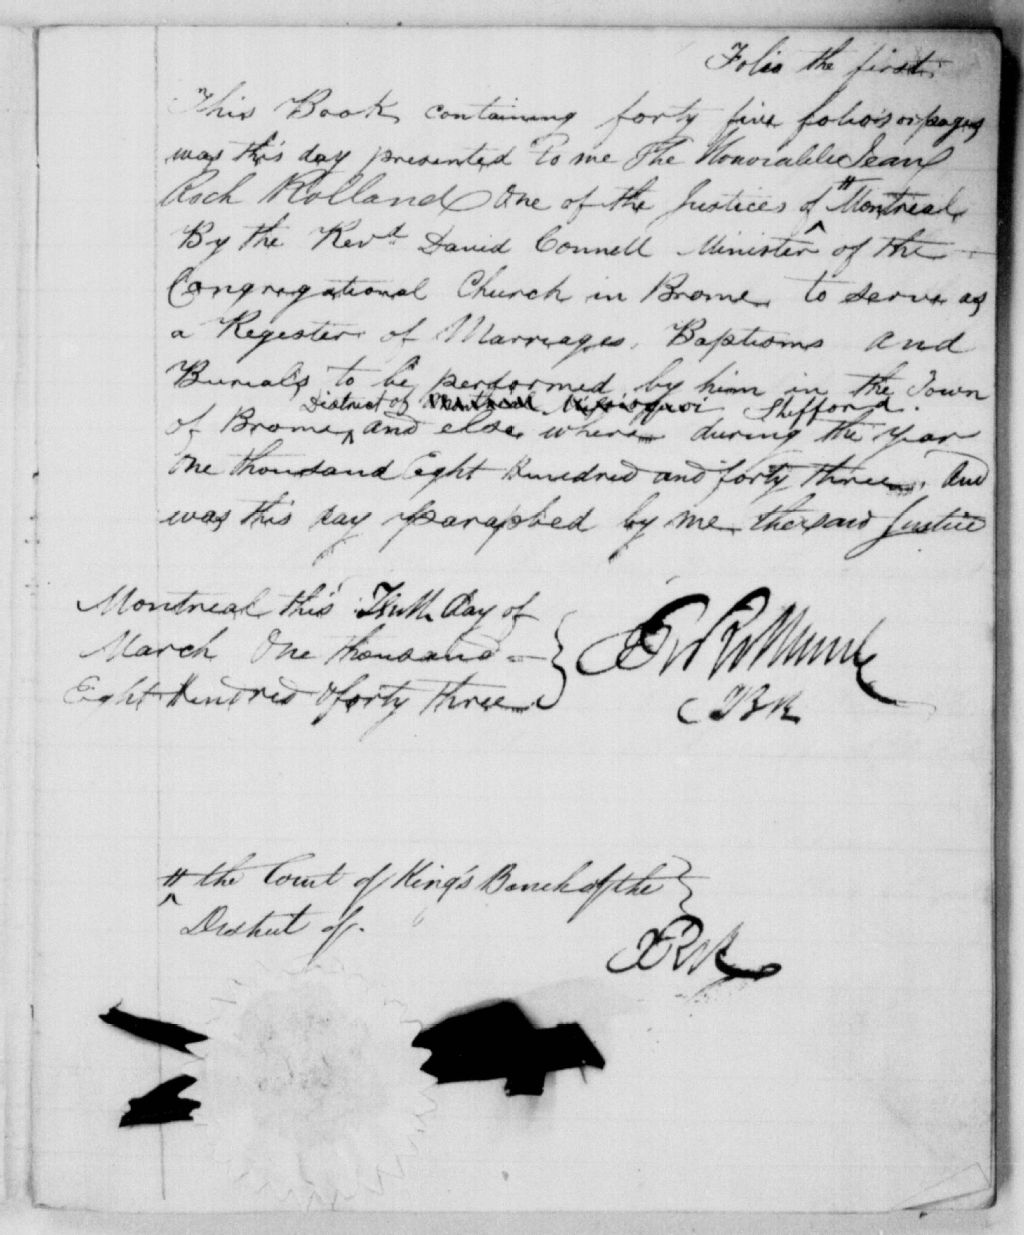 Folio the first.
This Book containing forty five folio's or pages
was this day presented to me The Honorable Jean
Roch Rolland One of the Justices of # Montreal
By the Revd David Connell Minister of the
Congregational Church in Brome to serve as
a Register of Marriages, Baptisms and
Burials to be performed by him in the Town
District of Montreal Missisquoi Shefford.
of Brome and else where during the year
One thousand Eight hundred and forty three. And
was this day paraphed by me the said Justice
Montreal this Tenth day of
March One thousand
Eight Hundred & forty three
Rolland
JBR
# the Court of King's Bench of the
District of.